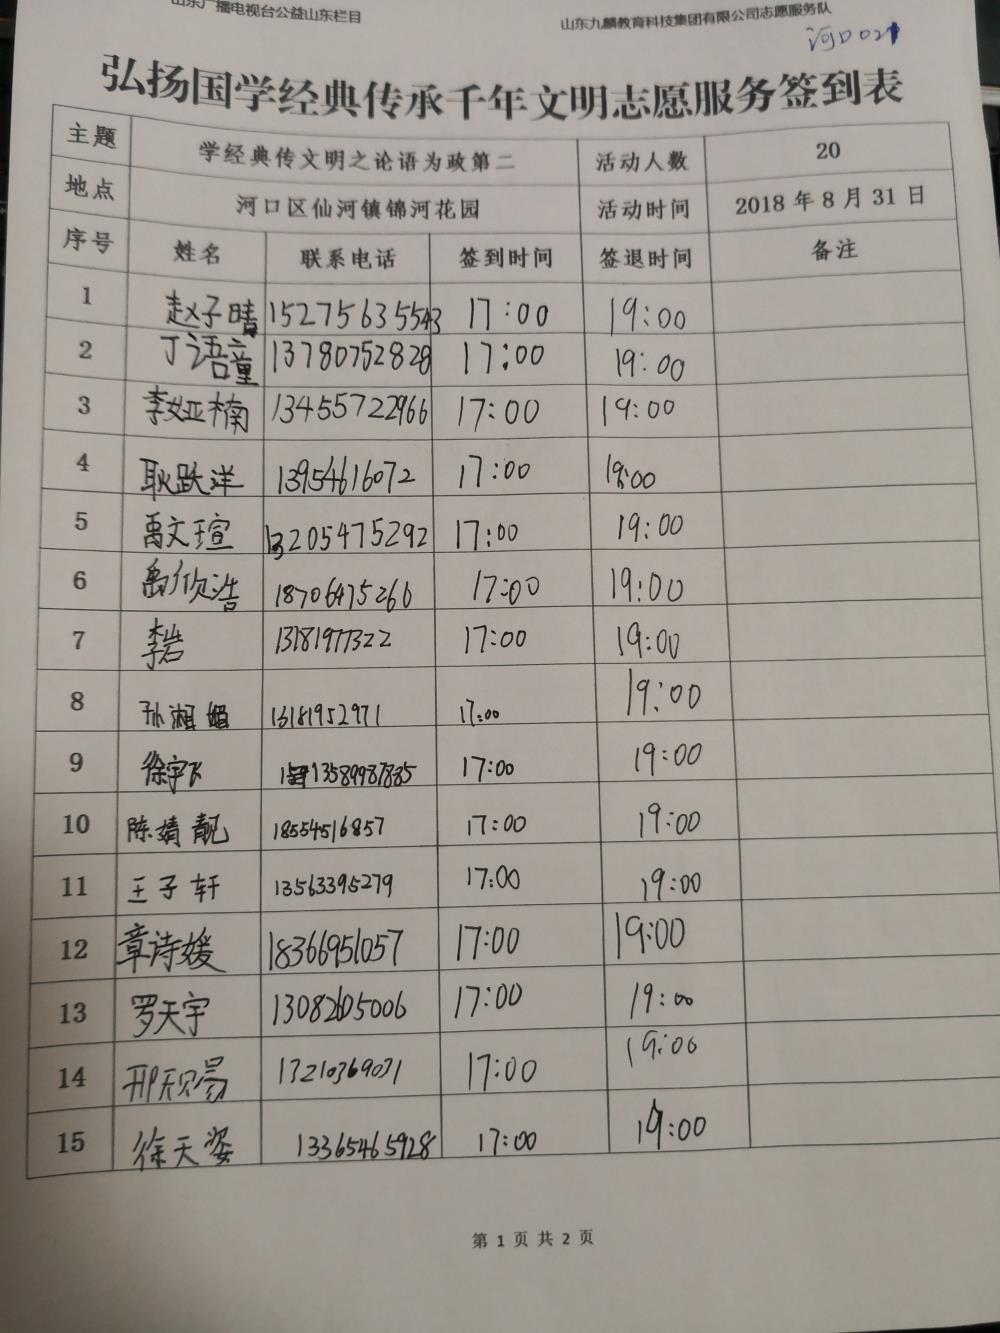 山东广播电视台公益山东栏目
山东九麟教育科技集团有限公司志愿服务队
河口021
弘扬国学经典传承千年文明志愿服务签到表
主题 学经典传文明之论语为政第二 活动人数 20
地点 河口区仙河镇锦河花园 活动时间 2018 年 8 月 31 日
序号 姓名 联系电话 签到时间 签退时间 备注
1 赵子晴 15275635543 17:00 19:00
2 丁语童 13780752828 17:00 19:00
3 李娅楠 13455722966 17:00 19:00
4 耿跃洋 13954616072 17:00 19:00
5 禹文瑄 13205475292 17:00 19:00
6 禹欣浩 18706475266 17:00 19:00
7 李岩 13181977322 17:00 19:00
8 孙湘 13181952971 17:00 19:00
9 徐宇飞 13589987885 17:00 19:00
10 陈婧靓 18554516857 17:00 19:00
11 王子轩 13563395279 17:00 19:00
12 章诗媛 18366951057 17:00 19:00
13 罗天宇 13082605006 17:00 19:00
14 邢天易 13210369071 17:00 19:00
15 徐天姿 13365465928 17:00 19:00
第 1 页 共 2 页